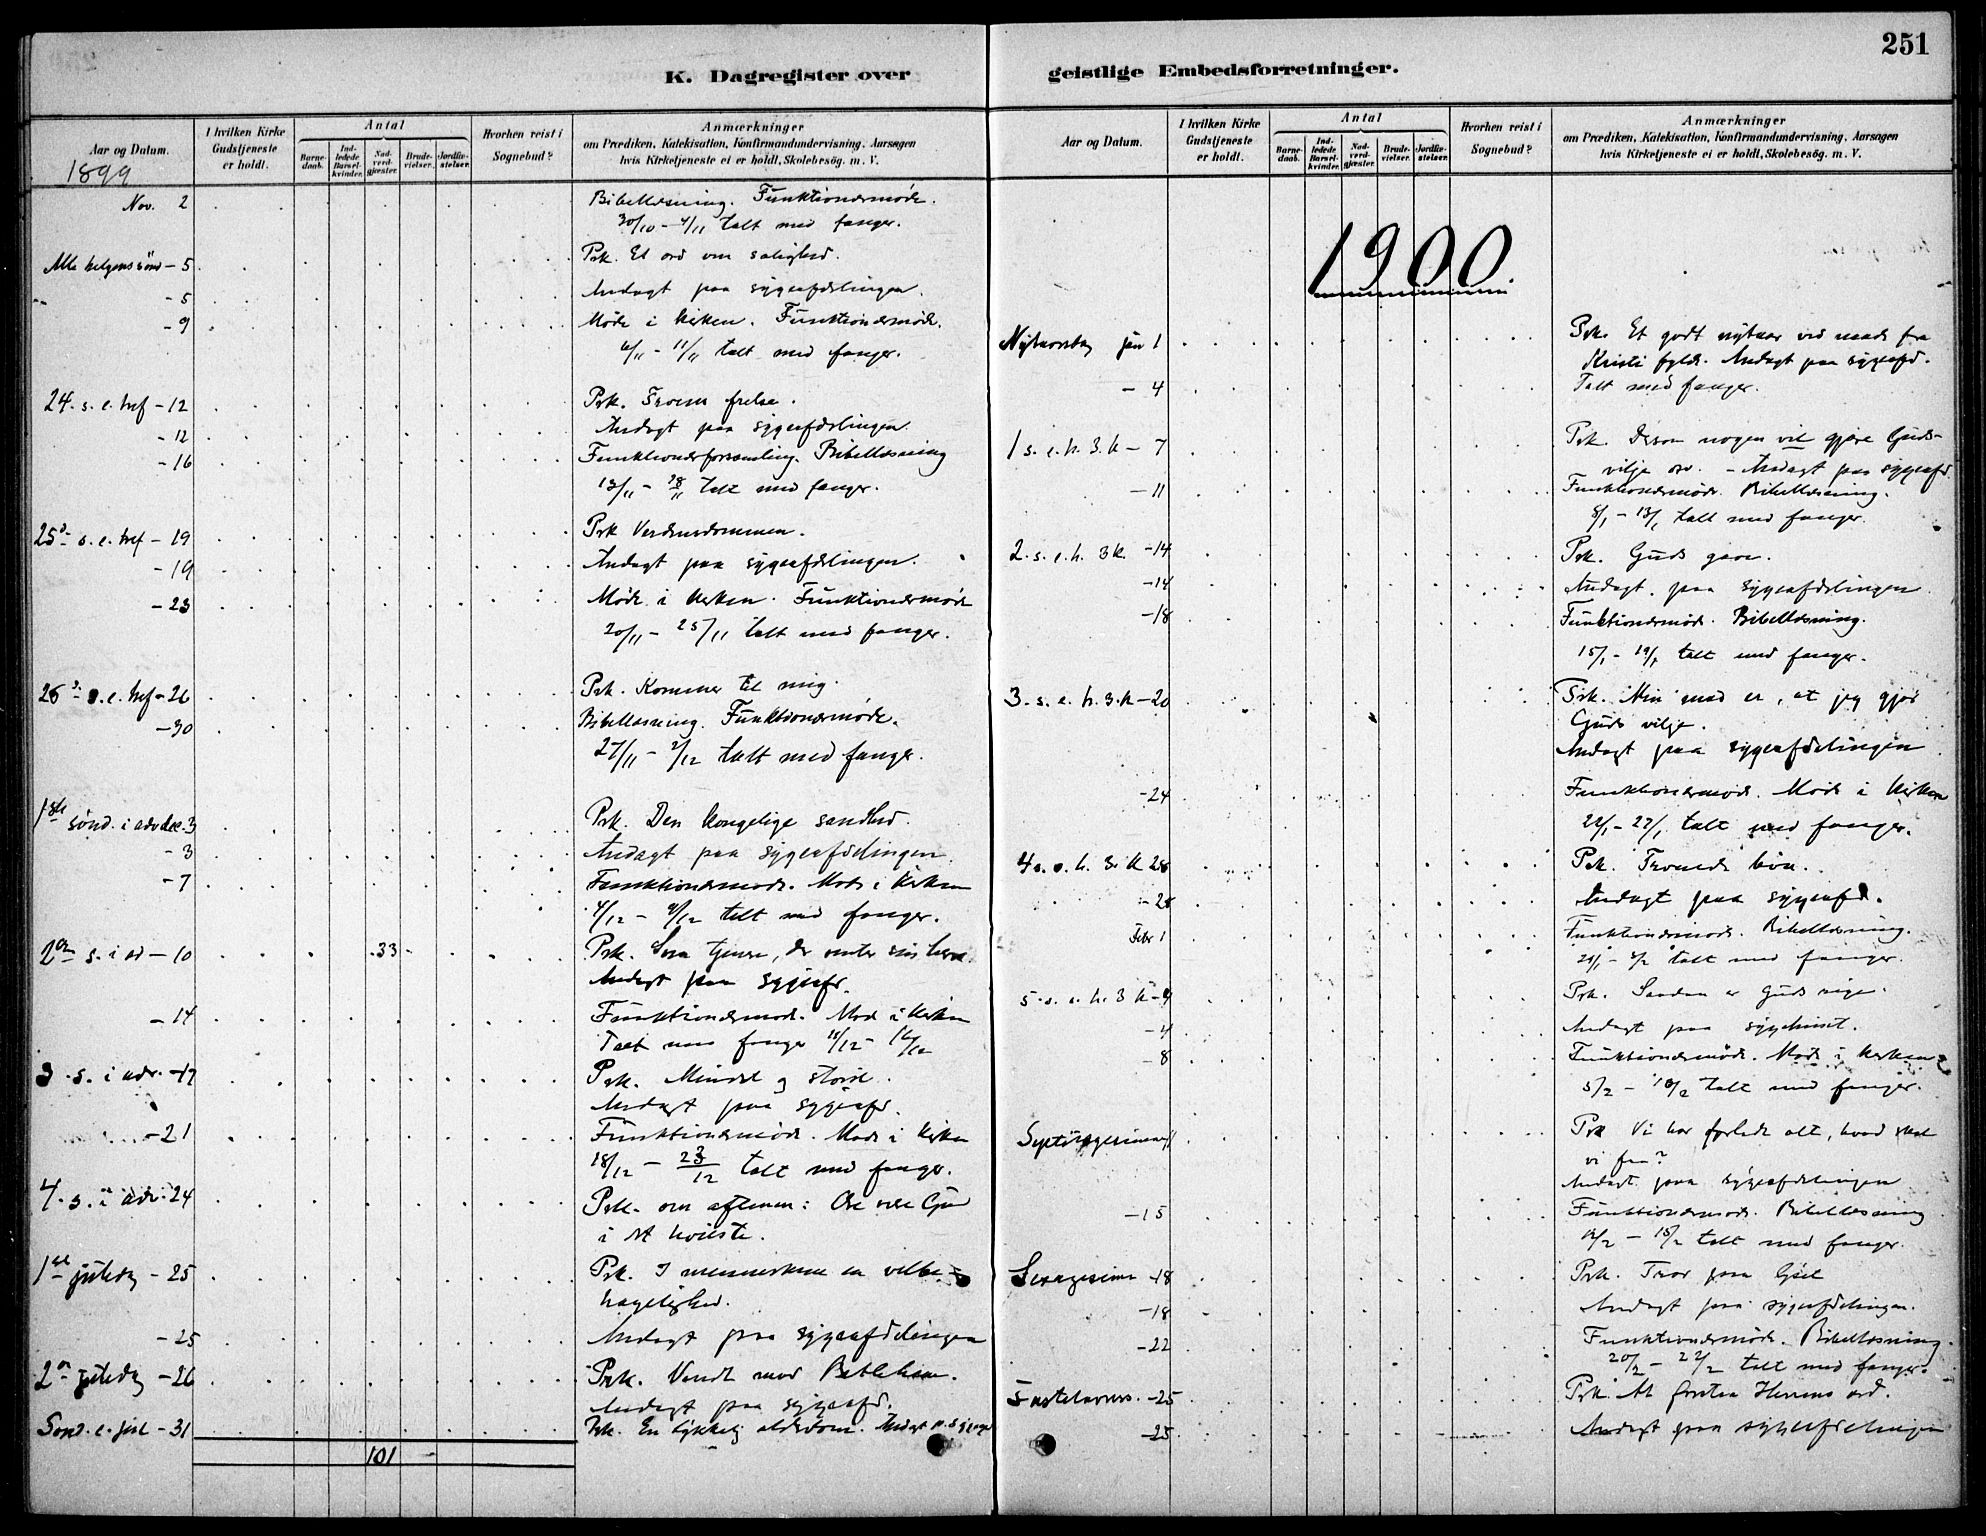 251
K. Dagregister over geistlige Embedsforretninger.
Aar og Datum.
I hvilken Kirke Gudstjeneste er holdt.
Antal
Barnedaab.
Indledede Barselkvinder.
Nadverdgjæster.
Brudevielser.
Jordfæstelser.
Hvorhen reist i Sognebud?
Anmærkninger
om Prædiken, Katekisation, Konfirmandundervisning, Aarsagen
hvis Kirketjeneste ei er holdt, Skolebesög. m. V.
1899
Nov. 2 Bibellæsning. Funktionærmöde.
30/10 - 4/11 talt med fanger.
Alle helgens sönd - 5 Prk. Et ord om salighed.
- 5 Andagt paa sygeafdelingen.
- 9 Möde i kirken. Funktionærmöde.
6/11 - 11/11 talt med fanger.
24. s. e. tref - 12 Prk. Troens frelse.
- 12 Andagt paa sygeafdelingen.
- 16 Funktionærforsamling. Bibellæsning
13/11 - 18/11 talt med fanger.
25de s. e. tref - 19 Prk Verdensdommen.
- 19 Andagt paa sygeafdelingen.
- 23 Möde i kirken. Funktionærmöde
20/11 - 25/11 talt med fanger.
26 s. e. tref - 26 Prk. Kommer til mig.
- 30 Bibellæsning. Funktionærmöde.
27/11 - 2/12 talt med fanger.
1ste sönd. i adv dec. 3 Prk. Den kongelige sandhed.
- 3 Andagt paa sygeafdelingen.
- 7 Funktionærmöde. Möde i kirken
4/12 - 9/12 talt med fanger.
2den s. i ad - 10 33 Prk. Som tjenere, der venter sin herre.
Andagt paa sygeafd.
- 14 Funktionærmöde. Möde i kirken
Talt med fanger 11/12 - 16/12
3. s. i adv. - 17 Prk. Mindst og störst.
Andagt paa sygeafd.
- 21 Funktionærmöde. Möde i kirken
18/12 - 23/12 talt med fanger.
4. s. i adv. 24 Prk. om aftenen: Ære være Gud
i det höieste.
1ste juledag - 25 Prk. I menneskene en velbe-
hagelighed.
- 25 Andagt paa sygeafdelingen
2den juledag - 26 Prk. Vendt mod Betlehem.
Andagt paa sygeafd.
Sönd. e. jul - 31 Prk. En lykkelig alderdom. Andagt p. sygeaf
101
Aar og Datum.
I hvilken Kirke Gudstjeneste er holdt.
Antal
Barnedaab.
Indledede Barselkvinder.
Nadverdgjæster.
Brudevielser.
Jordfæstelser.
Hvorhen reist i Sognebud?
Anmærkninger
om Prædiken, Katekisation, Konfirmandundervisning, Aarsagen
hvis Kirketjeneste ei er holdt, Skolebesög. m. V.
1900.
Nytaarsdag jan 1 Prk. Et godt nytaar ved naade fra
Kristi fylde. Andagt paa sygeafd.
- 4 Talt med fanger.
1 s. e. h. 3. k - 7 Prk. Dersom nogen vil gjöre Guds-
vilje osv. - Andagt paa sygeafd.
- 11 Funktionærmöde. Bibellæsning.
8/1 - 13/1 talt med fanger.
2. s. e. h. 3 k. - 14 Prk. Guds gave.
- 14 Andagt paa sygeafdelingen
- 18 Funktionærmöde. Bibellæsning.
15/1 - 19/1 talt med fanger.
3. s. e. h. 3. k - 20 Prk. Min mad er, at jeg gjör
Guds vilje.
Andagt paa sygeafdelingen
- 24 Funktionærmöde. Möde i kirken
22/1 - 27/1 talt med fanger.
4 s. e. h. 3. k 28 Prk. Troendes bön.
- 28 Andagt paa sygeafd.
Febr 1 Funktionærmöde. Bibellæsning.
talt med fanger.
5. s. e. h. 3 k - 4 Prk. Saadan er Guds rige.
- 4 Andagt paa sygehuset.
- 8 Funktionærmöde. Möde i kirken
5/2 - 10/2 talt med fanger.
Septuagesima 11 Prk Vi har forladt alt, hvad skal
vi faa?
Andagt paa sygeafdelingen
- 15 Funktionærmöde. Bibellæsning
12/2 - 15/2 talt med fanger.
Sexagesima - 18 Prk. Tror paa lyset
- 18 Andagt paa sygeafdelingen.
- 22 Funktionærmöde. Bibellæsning.
20/2 - 22/2 talt med fanger.
Fastelavns. - 25 Prk. At forstaa Herrens ord.
- 25 Andagt paa sygeafdelingen